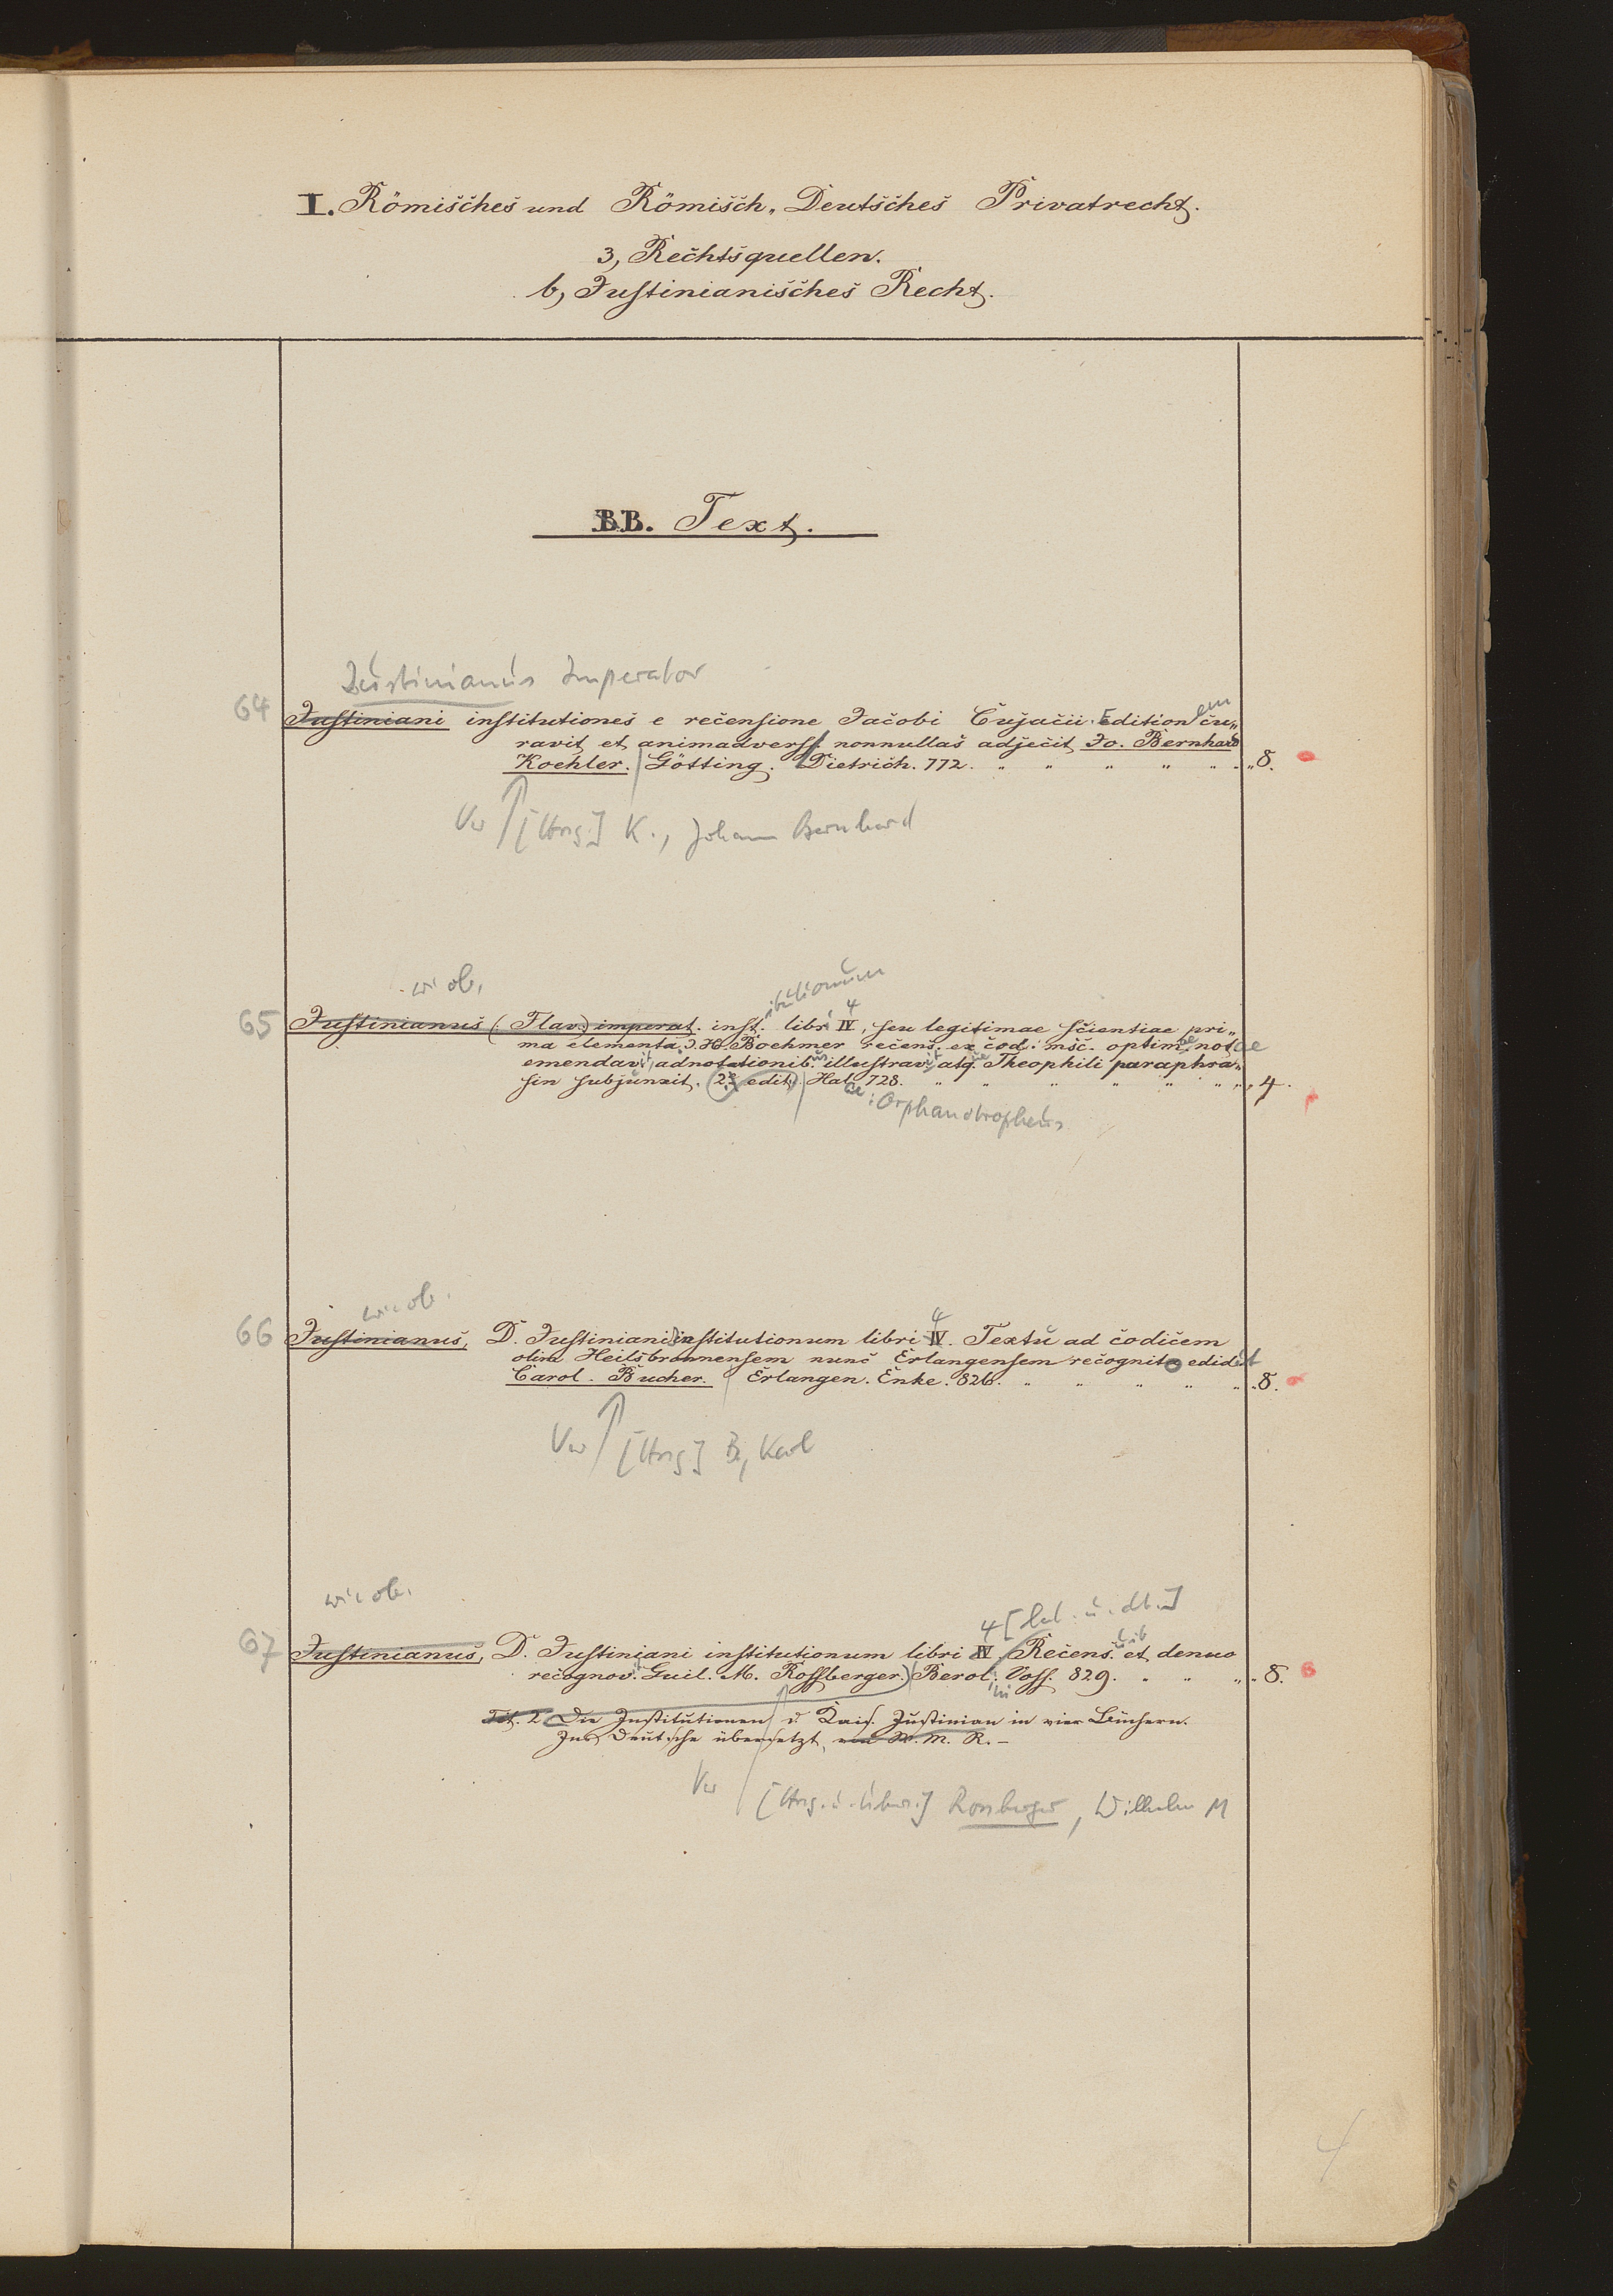 I. Römisches und Römisch-Deutsches Privatrecht.
3, Rechtsquellen.
b, Justinianisches Recht.
BB. Text.
Justinianus Imperator
64 Justiniani institutiones e recensione Jacobi Cujacii. Editionem cu-
ravit et animadverss. nonnullas adjecit Jo. Bernhard
Koehler. Götting. Dietrich. 772. 8.
Vw [Hrsg.] K., Johann Bernhard
w. ob. itutionum
4
65 Justinianus (Flav.) imperat. inst. libri IV, seu legitimae scientiae pri-
ma elementa. J. H. Boehmer recens. ex cod. msc. optimae notae
emendavit, adnotationib. illustravit atq. Theophili paraphra-
sin subjunxit. 2e edit. Hal. 728. 4.
ae: Orphanotropheus
wie ob. 4
66 Justinianus, D. Justiniani institutionum libri IV. Textu ad codicem
olim Heilsbronnensem nunc Erlangensem recognito edidit
Carol. Bucher. Erlangen. Enke. 826. 8.
Vw [Hrsg] B, Karl
wie ob. 4 [lat. u. dt.]
67 Justinianus, D. Justiniani institutionum libri IV Recens. et denuo
recognov. Guil. M. Rossberger. Berol. Voss. 829. 8.
Tit. 2 Die Institutionen d. Kais. Justinian in vier Büchern.
Ins Deutsche übersetzt, von W. M. R.-
Vw [Hrsg. u. Übers.] Rossberger, Wilhelm M
4